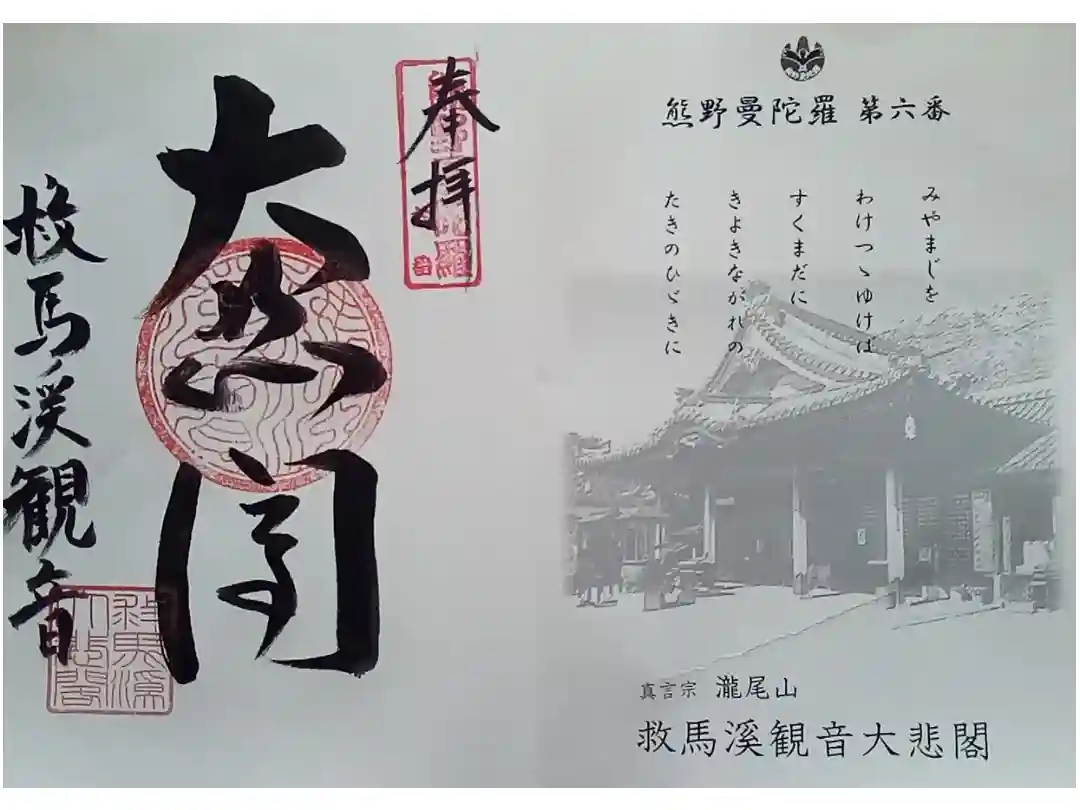 熊野曼陀羅 第六番
みやまじを
わけつゝゆけば
すくまだに
きよきながれの
たきのひゞきに
真言宗 瀧尾山
救馬溪観音大悲閣
奉拝
大悲閣
救馬溪観音